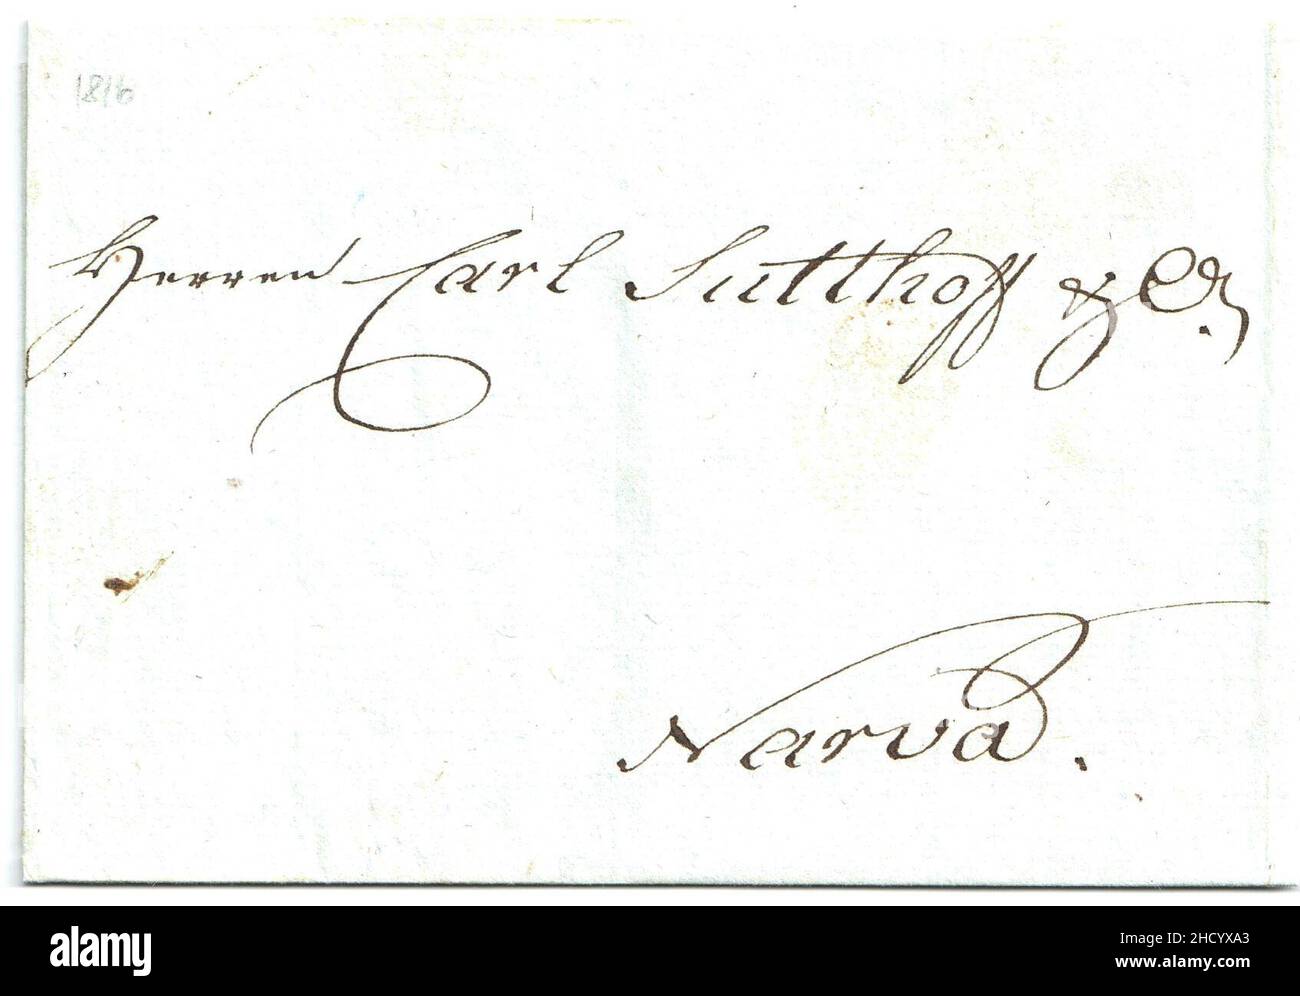 1816
Herren Carl Sutthoff & Co.
Narva.
alamy
Image ID: 2HCYXA3
www.alamy.com